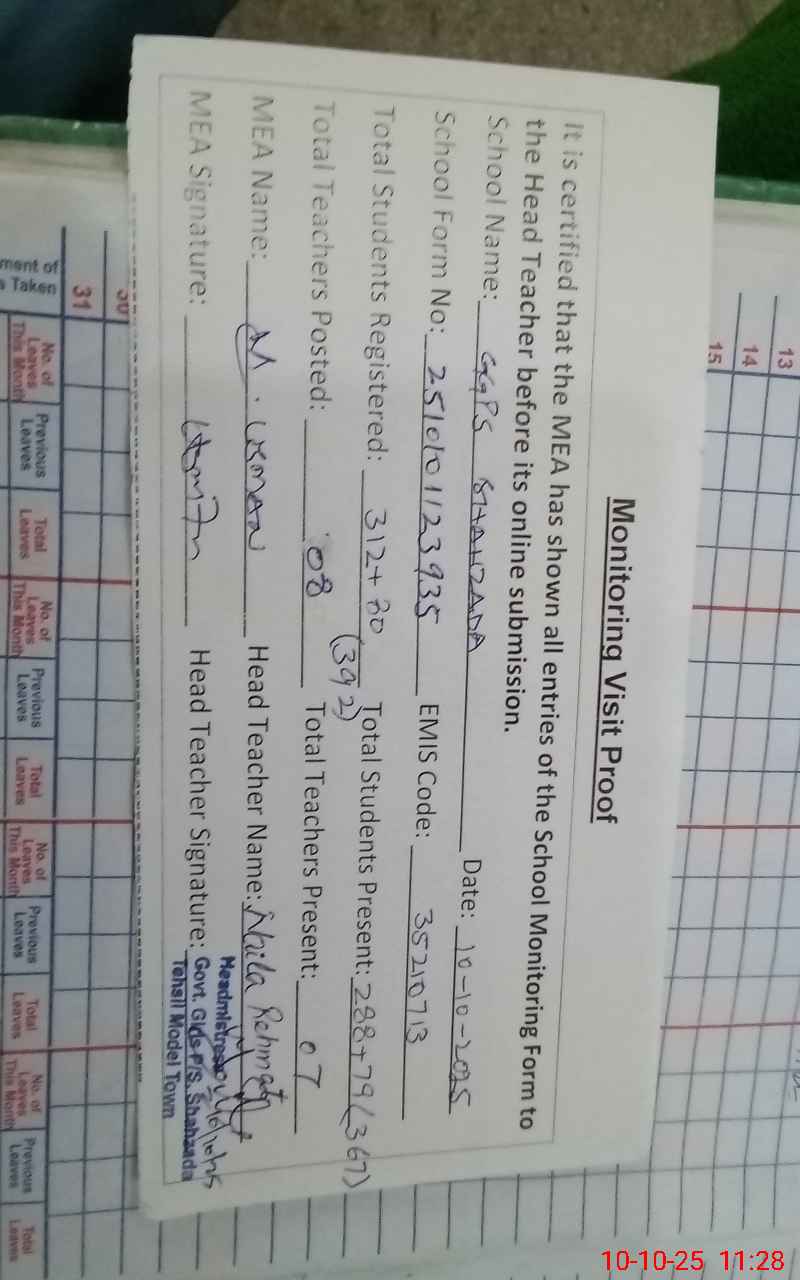 Monitoring Visit Proof
It is certified that the MEA has shown all entries of the School Monitoring Form to
the Head Teacher before its online submission.
School Name: GGPS SHAHZADA Date: 10-10-2025
School Form No: 2510101123935 EMIS Code: 35210713
Total Students Registered: 312+80 (392) Total Students Present: 288+79(367)
Total Teachers Posted: 08 Total Teachers Present: 07
MEA Name: M. USMAN Head Teacher Name: Rehmat
MEA Signature: Head Teacher Signature:
Headmistress
Govt. Girls P/S. Shahzada
Tehsil Model Town
13
14
15
30
31
ment of
s Taken
No. of Leaves This Month Previous Leaves Total Leaves No. of Leaves This Month Previous Leaves Total Leaves No. of Leaves This Month Previous Leaves Total Leaves No. of Leaves This Month Previous Leaves Total Leaves
10-10-25 11:28